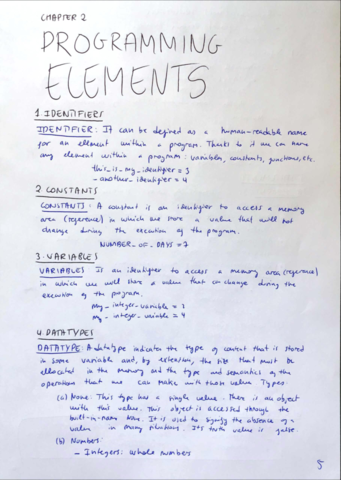 CHAPTER 2
PROGRAMMING
ELEMENTS
1 IDENTIFIERS
IDENTIFIER: It can be defined as a human-readable name
for an element within a program. Thanks to it we can name
any element within a program: variables, constants, functions, etc.
this_is_my_identifier = 3
_another_identifier = 4
2 CONSTANTS
CONSTANTS: A constant is an identifier to access a memory
area (reference) in which we store a value that will not
change during the execution of the program.
NUMBER_OF_DAYS = 7
3 VARIABLES
VARIABLES Is an identifier to access a memory area (reference)
in which we will store a value that can change during the
execution of the program.
my_integer_variable = 3
my_integer_variable = 4
4 DATATYPES
DATATYPE: A datatype indicates the type of content that is stored
in some variable and, by extension, the size that must be
allocated in the memory and the type and semantics of the
operations that we can make with those value Types
(a) None: This type has a single value. There is an object
with this value. This object is accessed through the
built-in-name None. It is used to signify the absence of a
value in many situations. It's truth value is false.
(b) Numbers:
- Integers: whole numbers
5